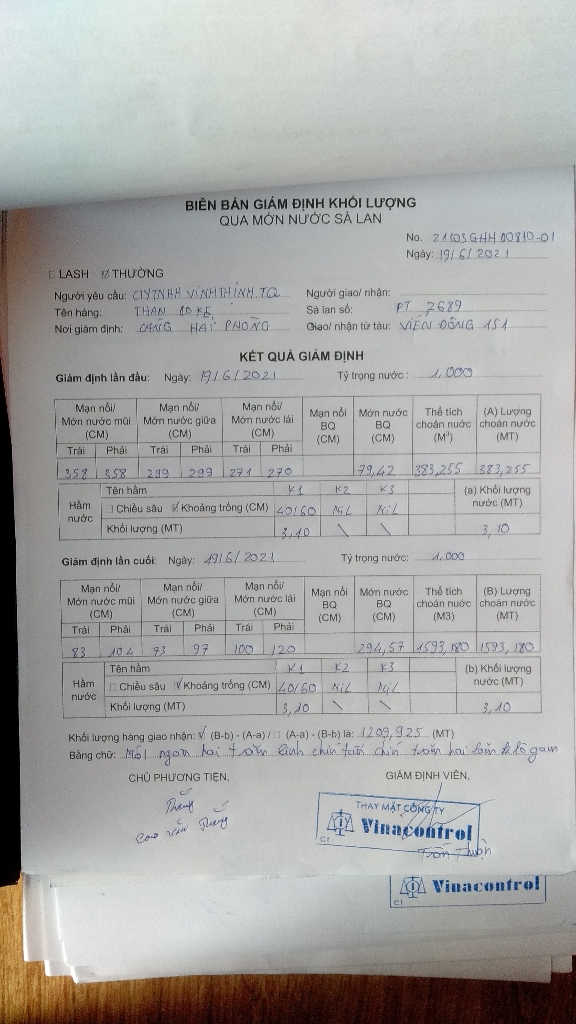 BIÊN BẢN GIÁM ĐỊNH KHỐI LƯỢNG
QUA MỚN NƯỚC SÀ LAN
No. 21G03GHH00810-01
Ngày: 19/6/2021
□ LASH ☑ THƯỜNG
Người yêu cầu: CTYTNHH VĨNH THỊNH.TQ Người giao/ nhận:
Tên hàng: THAN CO KE Sà lan số: PT 2689
Nơi giám định: CẢNG HẢI PHÒNG Giao/ nhận từ tàu: VIỄN ĐÔNG 151
KẾT QUẢ GIÁM ĐỊNH
Giám định lần đầu: Ngày: 19/6/2021 Tỷ trọng nước: 1,000
Mạn nổi/ Mớn nước mũi (CM) Mạn nổi/ Mớn nước giữa (CM) Mạn nổi/ Mớn nước lái (CM) Mạn nổi BQ (CM) Mớn nước BQ (CM) Thể tích choán nước (M³) (A) Lượng choán nước (MT)
Trái Phải Trái Phải Trái Phải
358 358 299 299 271 270 79,42 383,255 383,255
Hầm nước Tên hầm K1 K2 K3 (a) Khối lượng nước (MT)
□ Chiều sâu ☑ Khoảng trống (CM) 40/60 Nil Nil
Khối lượng (MT) 3,10 \ \ 3,10
Giám định lần cuối: Ngày: 19/6/2021 Tỷ trọng nước: 1.000
Mạn nổi/ Mớn nước mũi (CM) Mạn nổi/ Mớn nước giữa (CM) Mạn nổi/ Mớn nước lái (CM) Mạn nổi BQ (CM) Mớn nước BQ (CM) Thể tích choán nước (M3) (B) Lượng choán nước (MT)
Trái Phải Trái Phải Trái Phải
83 104 93 97 100 120 294,57 1593,180 1593,180
Hầm nước Tên hầm K1 K2 K3 (b) Khối lượng nước (MT)
□ Chiều sâu ☑ Khoảng trống (CM) 40/60 Nil Nil
Khối lượng (MT) 3,10 3,10
Khối lượng hàng giao nhận: ☑ (B-b) - (A-a) / □ (A-a) - (B-b) là: 1209,925 (MT)
Bằng chữ: Một ngàn hai trăm linh chín tấn chín trăm hai lăm kilôgam
CHỦ PHƯƠNG TIỆN, GIÁM ĐỊNH VIÊN,
Thắng
Cao Văn Thắng
THAY MẶT CÔNG TY
Vinacontrol
C1
Trần Thuận
Vinacontrol
C1